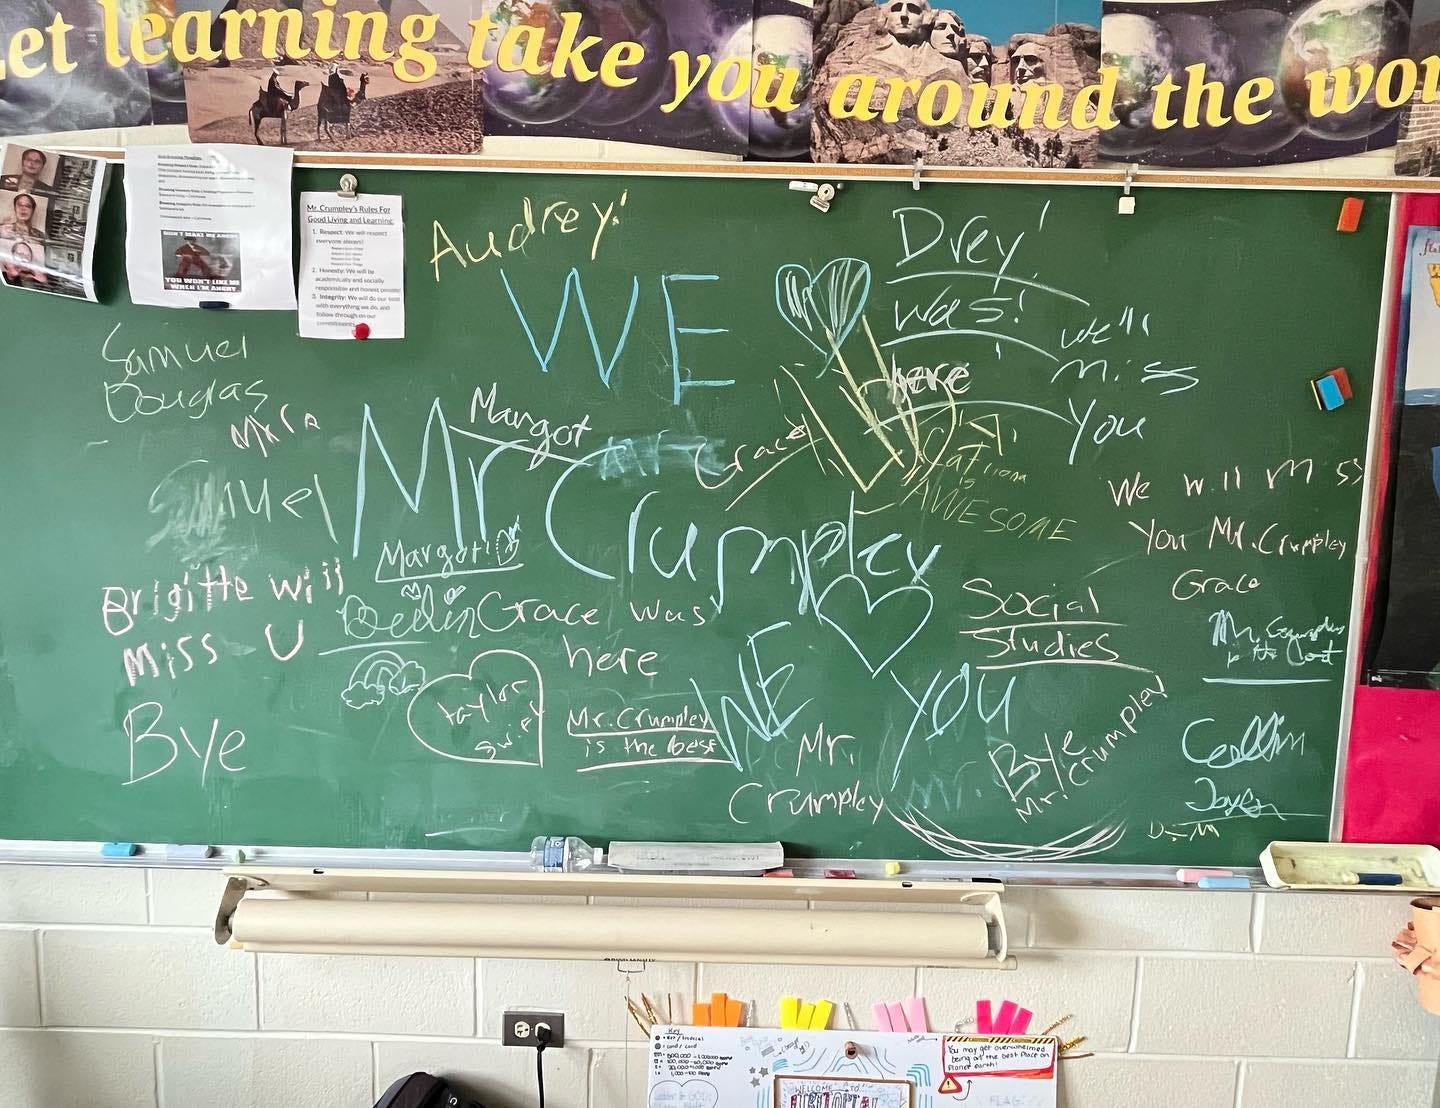 et learning take you around the wor
Mr. Crumpley's Rules For
Good Living and Learning:
1. Respect: We will respect
everyone always!
2. Honesty: We will be
academically and socially
responsible and honest people!
3. Integrity: We will do our best
with everything we do, and
follow through on our
commitments
DON'T MAKE ME ANGRY
YOU WON'T LIKE ME
WHEN I'M ANGRY
Audrey!
WE
Drey!
was!
here!
we'll
miss
You
Samuel
Douglas
Margot
Mr Crumpley
Grace
is
AWESOME
muel
We will miss
You Mr. Crumpley
Grace
Margot!
Brigitte will
Miss U
Bye
Grace was
here
Social
Studies
Taylor
Swift
Mr. Crumpley
is the best
WE
YOU
Mr.
Crumpley
Mr. C
Bye
Mr. Crumpley
Mr. Crumpley
is the Goat
Key
You may get overwhelmed
being at the best place on
Planet earth!
WELCOME TO
FLAG: